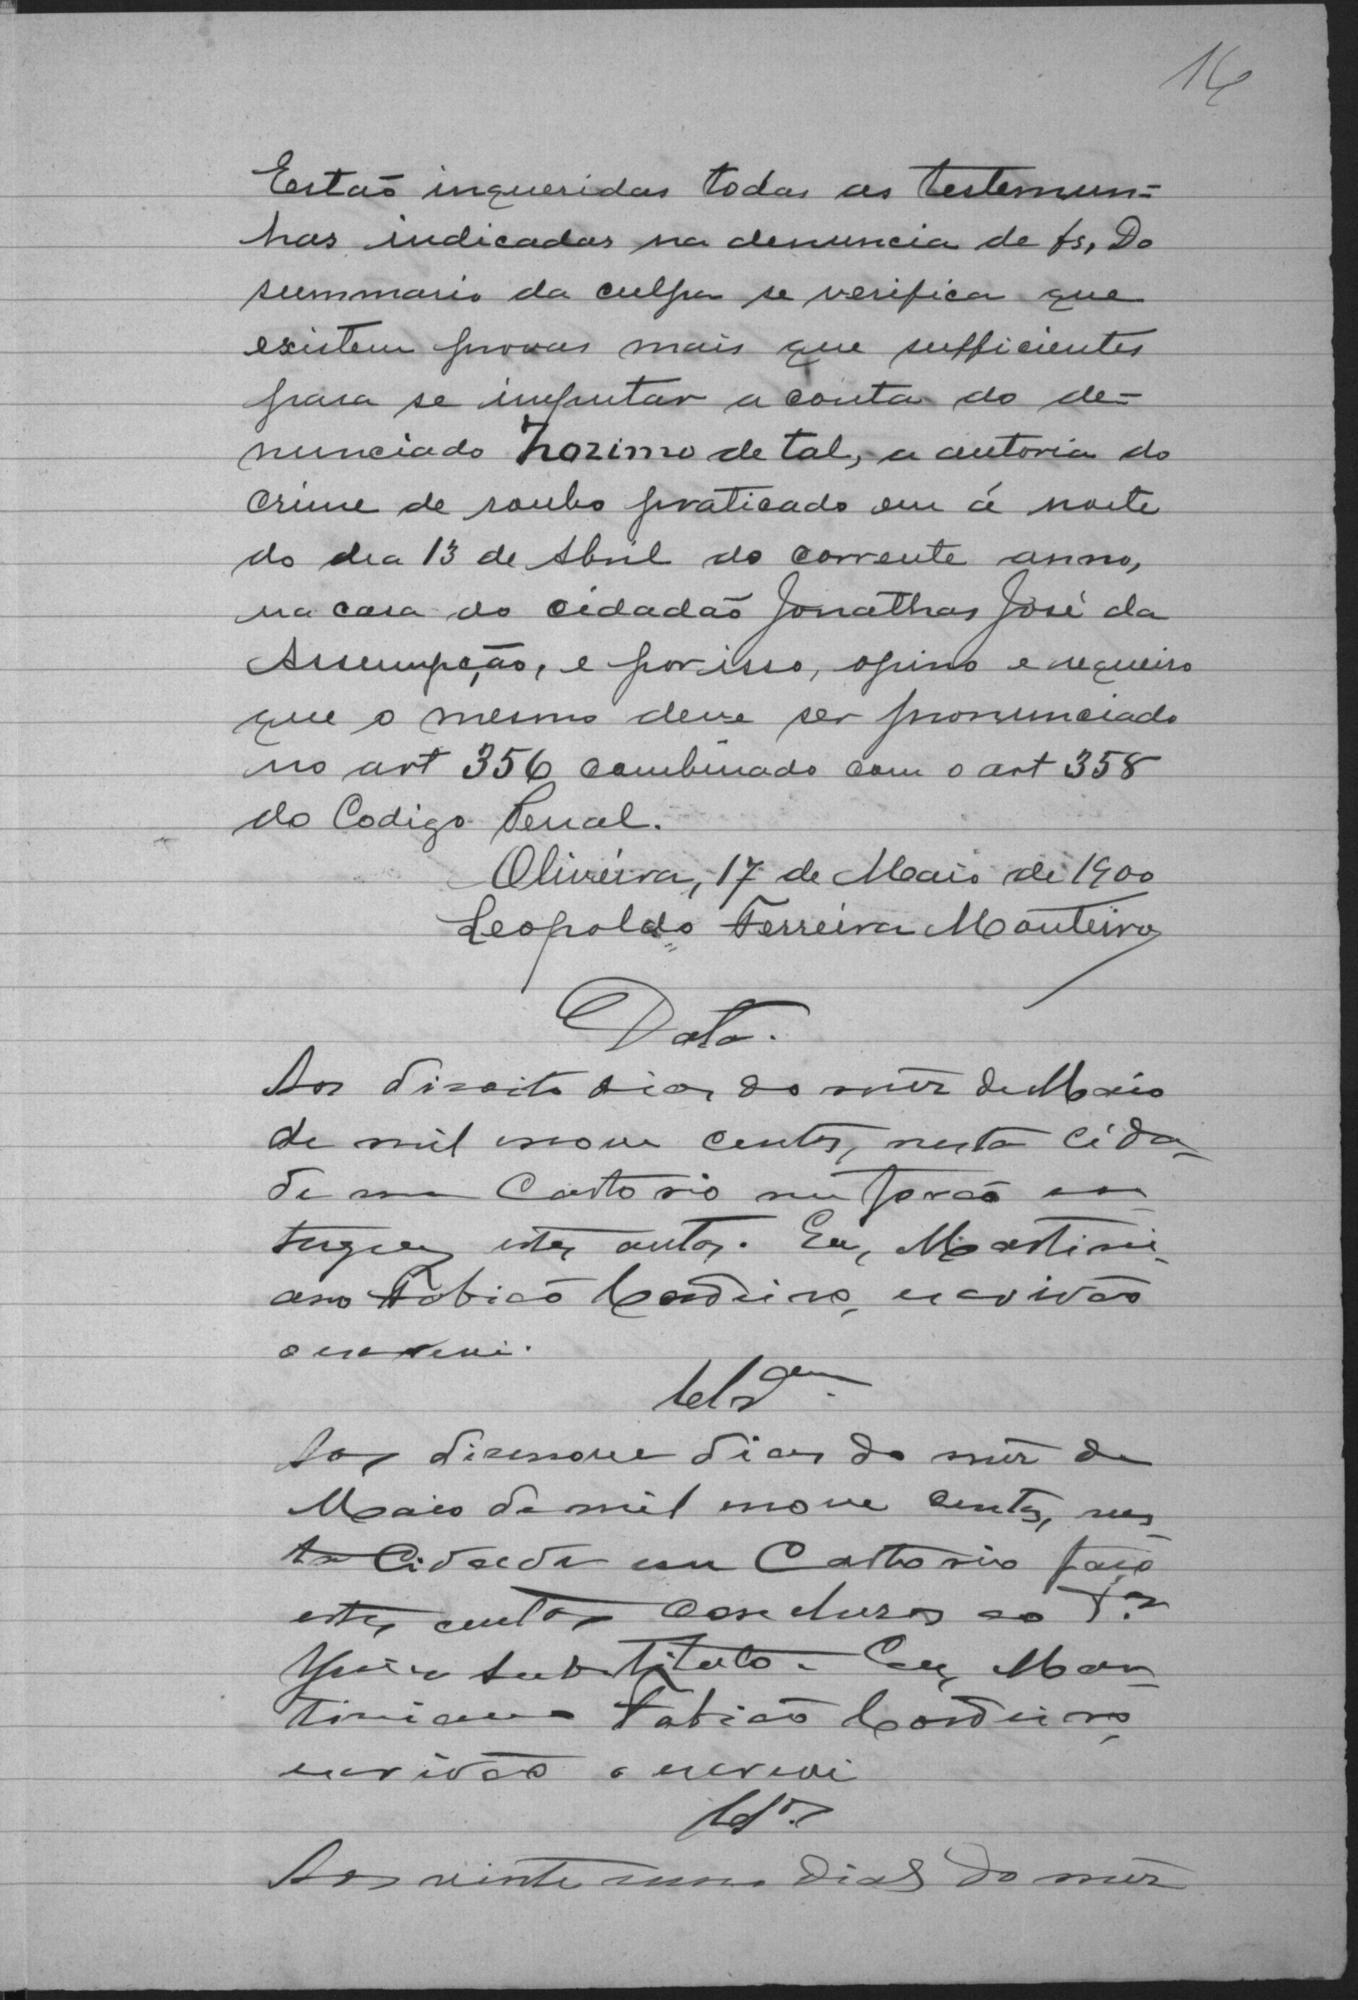 16
Estaõ inqueridas todas as testemun=
has indicadas na denuncia de fs, Do
summario da culpa se verifica que
existem provas mais que sufficientes
para se imputar a conta do de=
nunciado Zozimo de tal, a autoria do
crime de roubo praticado em á noite
do dia 13 de Abril do corrente anno,
na casa do cidadaõ Jonathas José da
Assumpção, e por isso, opino e requeiro
que o mesmo deve ser pronunciado
no art 356 combinado com o art 358
do Codigo Penal.
Oliveira, 17 de Maio de 1900
Leopoldo Ferreira Monteiro
Data.
Aos dizoito dias do mez de Maio
de mil nove centos, nesta cida-
de em Cartorio me foraõ en-
tregues estes autos. Eu, Martini-
ano Fabiaõ Cordeiro, escrivaõ
o escrevi.
Clsᵃᵐ.
Aos dizenove dias do mez de
Maio de mil nove centos, nes-
ta Cidade em Cartorio faço
estes autos conclusos ao Dʳ.
Juiz substituto. Eu, Mar-
tiniano Fabiaõ Cordeiro,
escrivaõ o escrevi
Aos vinte um dias do mez